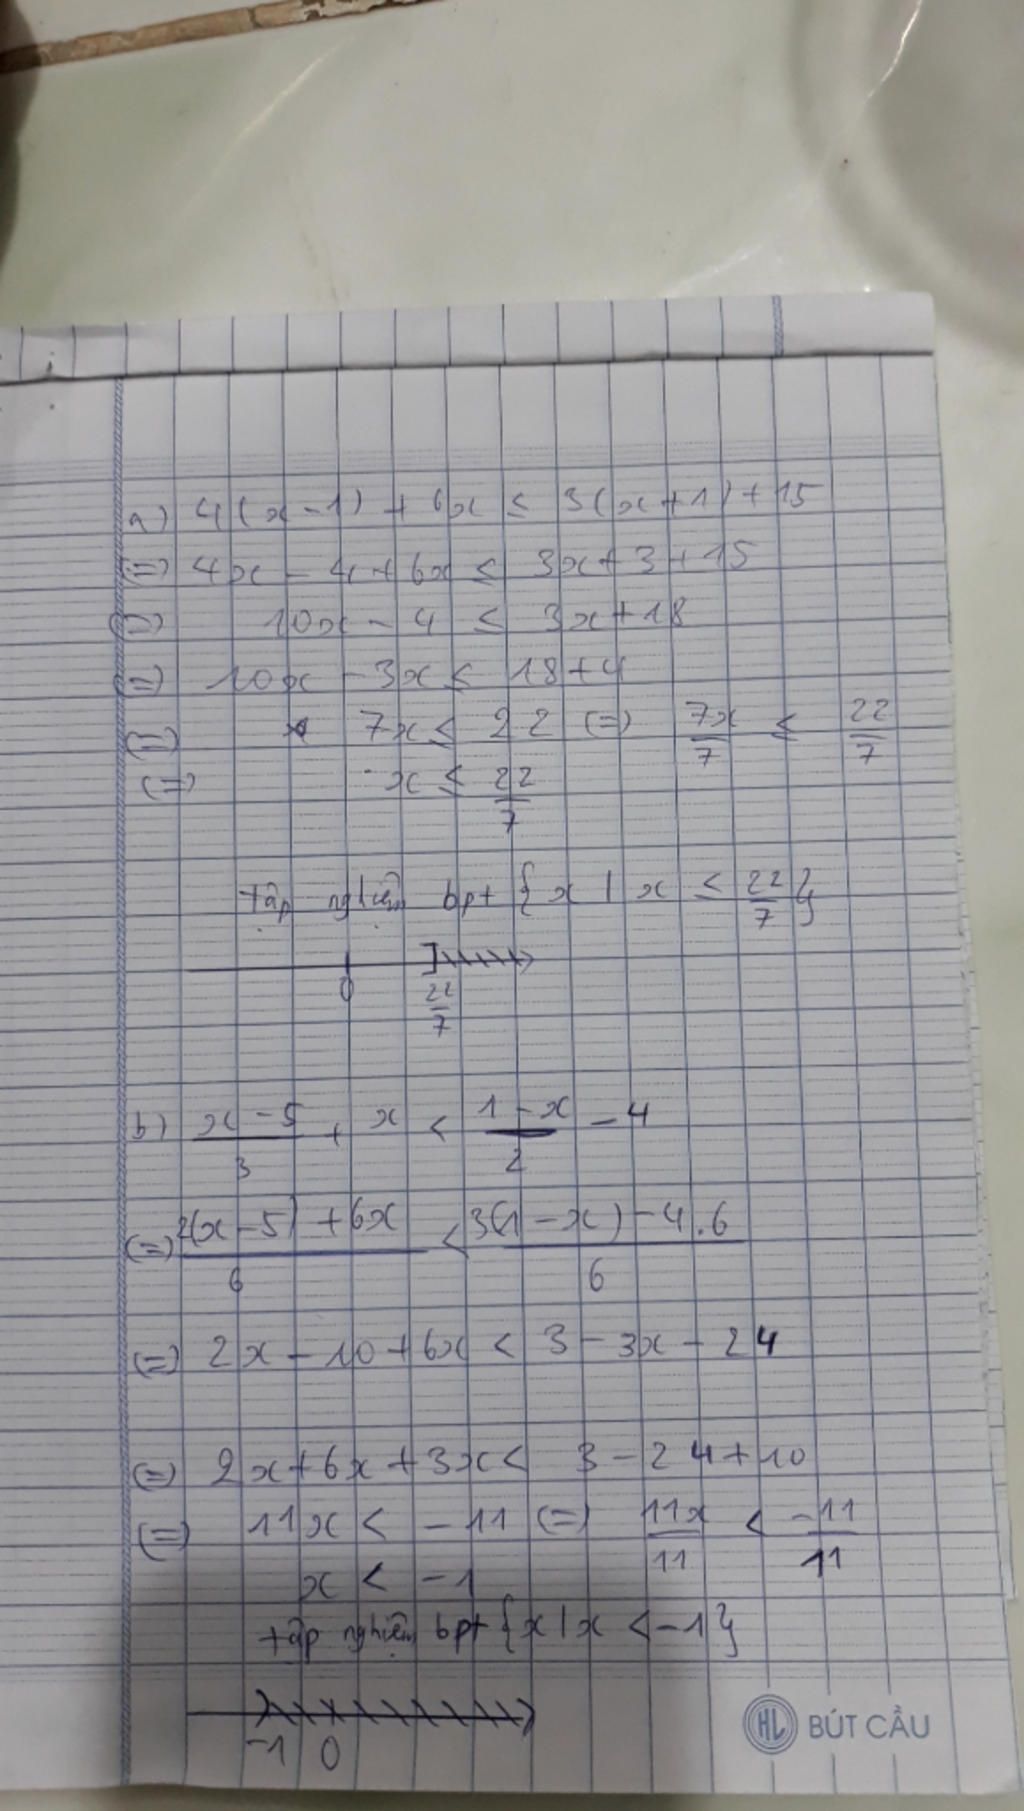 a) 4(x-1) + 6x ≤ 3(x+1)+15
(=) 4x - 4 + 6x ≤ 3x+3+15
(=) 10x - 4 ≤ 3x+18
(=) 10x - 3x ≤ 18+4
(=) 7x ≤ 22 (=) 7x/7 ≤ 22/7
(=) x ≤ 22/7
tập nghiệm bpt {x | x ≤ 22/7}
0 22/7
b) x-5/3 + x < 1-x/2 - 4
(=) 2(x-5)+6x/6 < 3(1-x)-4.6/6
(=) 2x - 10 + 6x < 3 - 3x - 24
(=) 2x+6x+3x < 3-24+10
(=) 11x < -11 (=) 11x/11 < -11/11
x < -1
tập nghiệm bpt {x|x < -1}
-1 0
HL BÚT CẦU